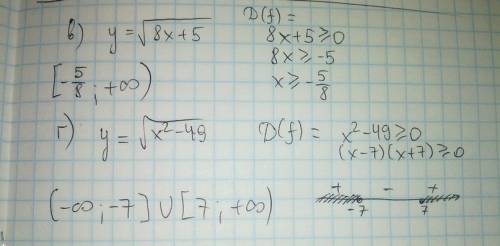 в) y = √(8x+5) D(f) =
8x+5 ≥ 0
8x ≥ -5
[-5/8 ; +∞) x ≥ -5/8
г) y = √(x²-49) D(f) = x²-49 ≥ 0
(x-7)(x+7) ≥ 0
(-∞ ; -7] ∪ [7 ; +∞) + - +
-7 7